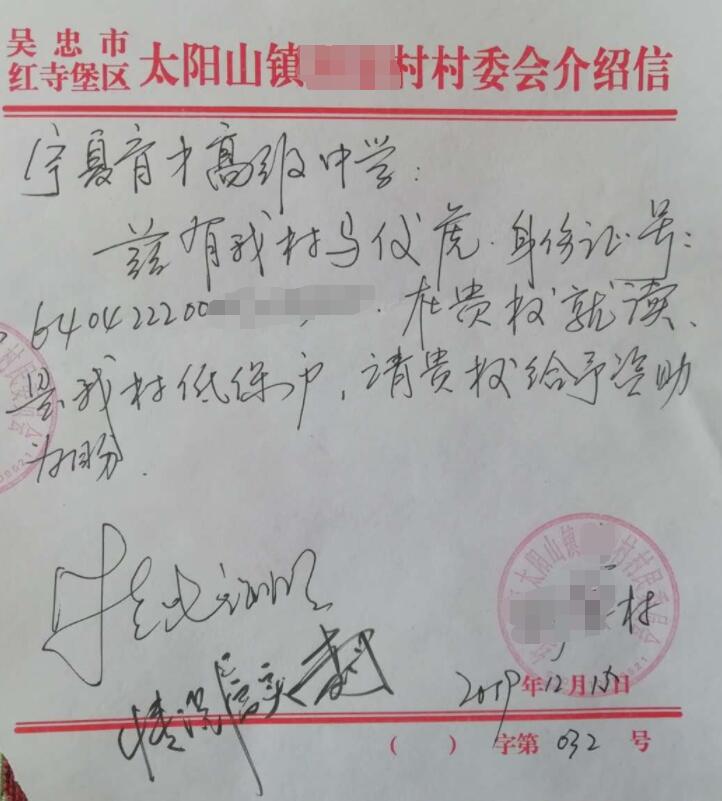 吴忠市
红寺堡区 太阳山镇 村村委会介绍信
宁夏育才高级中学：
兹有我村马仪虎．身份证号：
64042220 ．在贵校就读、
是我村低保户，请贵校给予资助
为盼．
特此证明
情况属实
太阳山镇 村村民委员会
村
2019年12月15日
( ) 字第 032 号